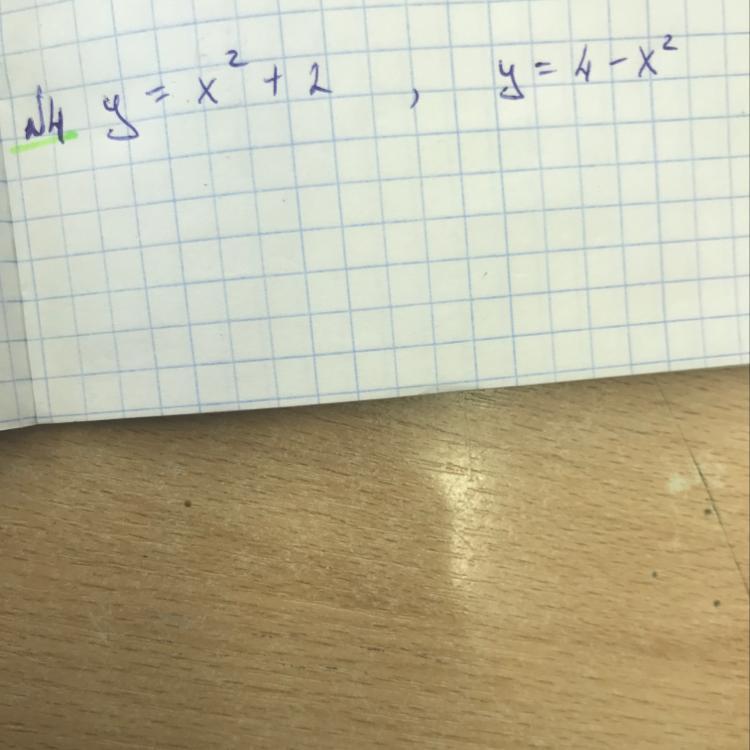 №4 y = x² + 2 , y = 4 - x²